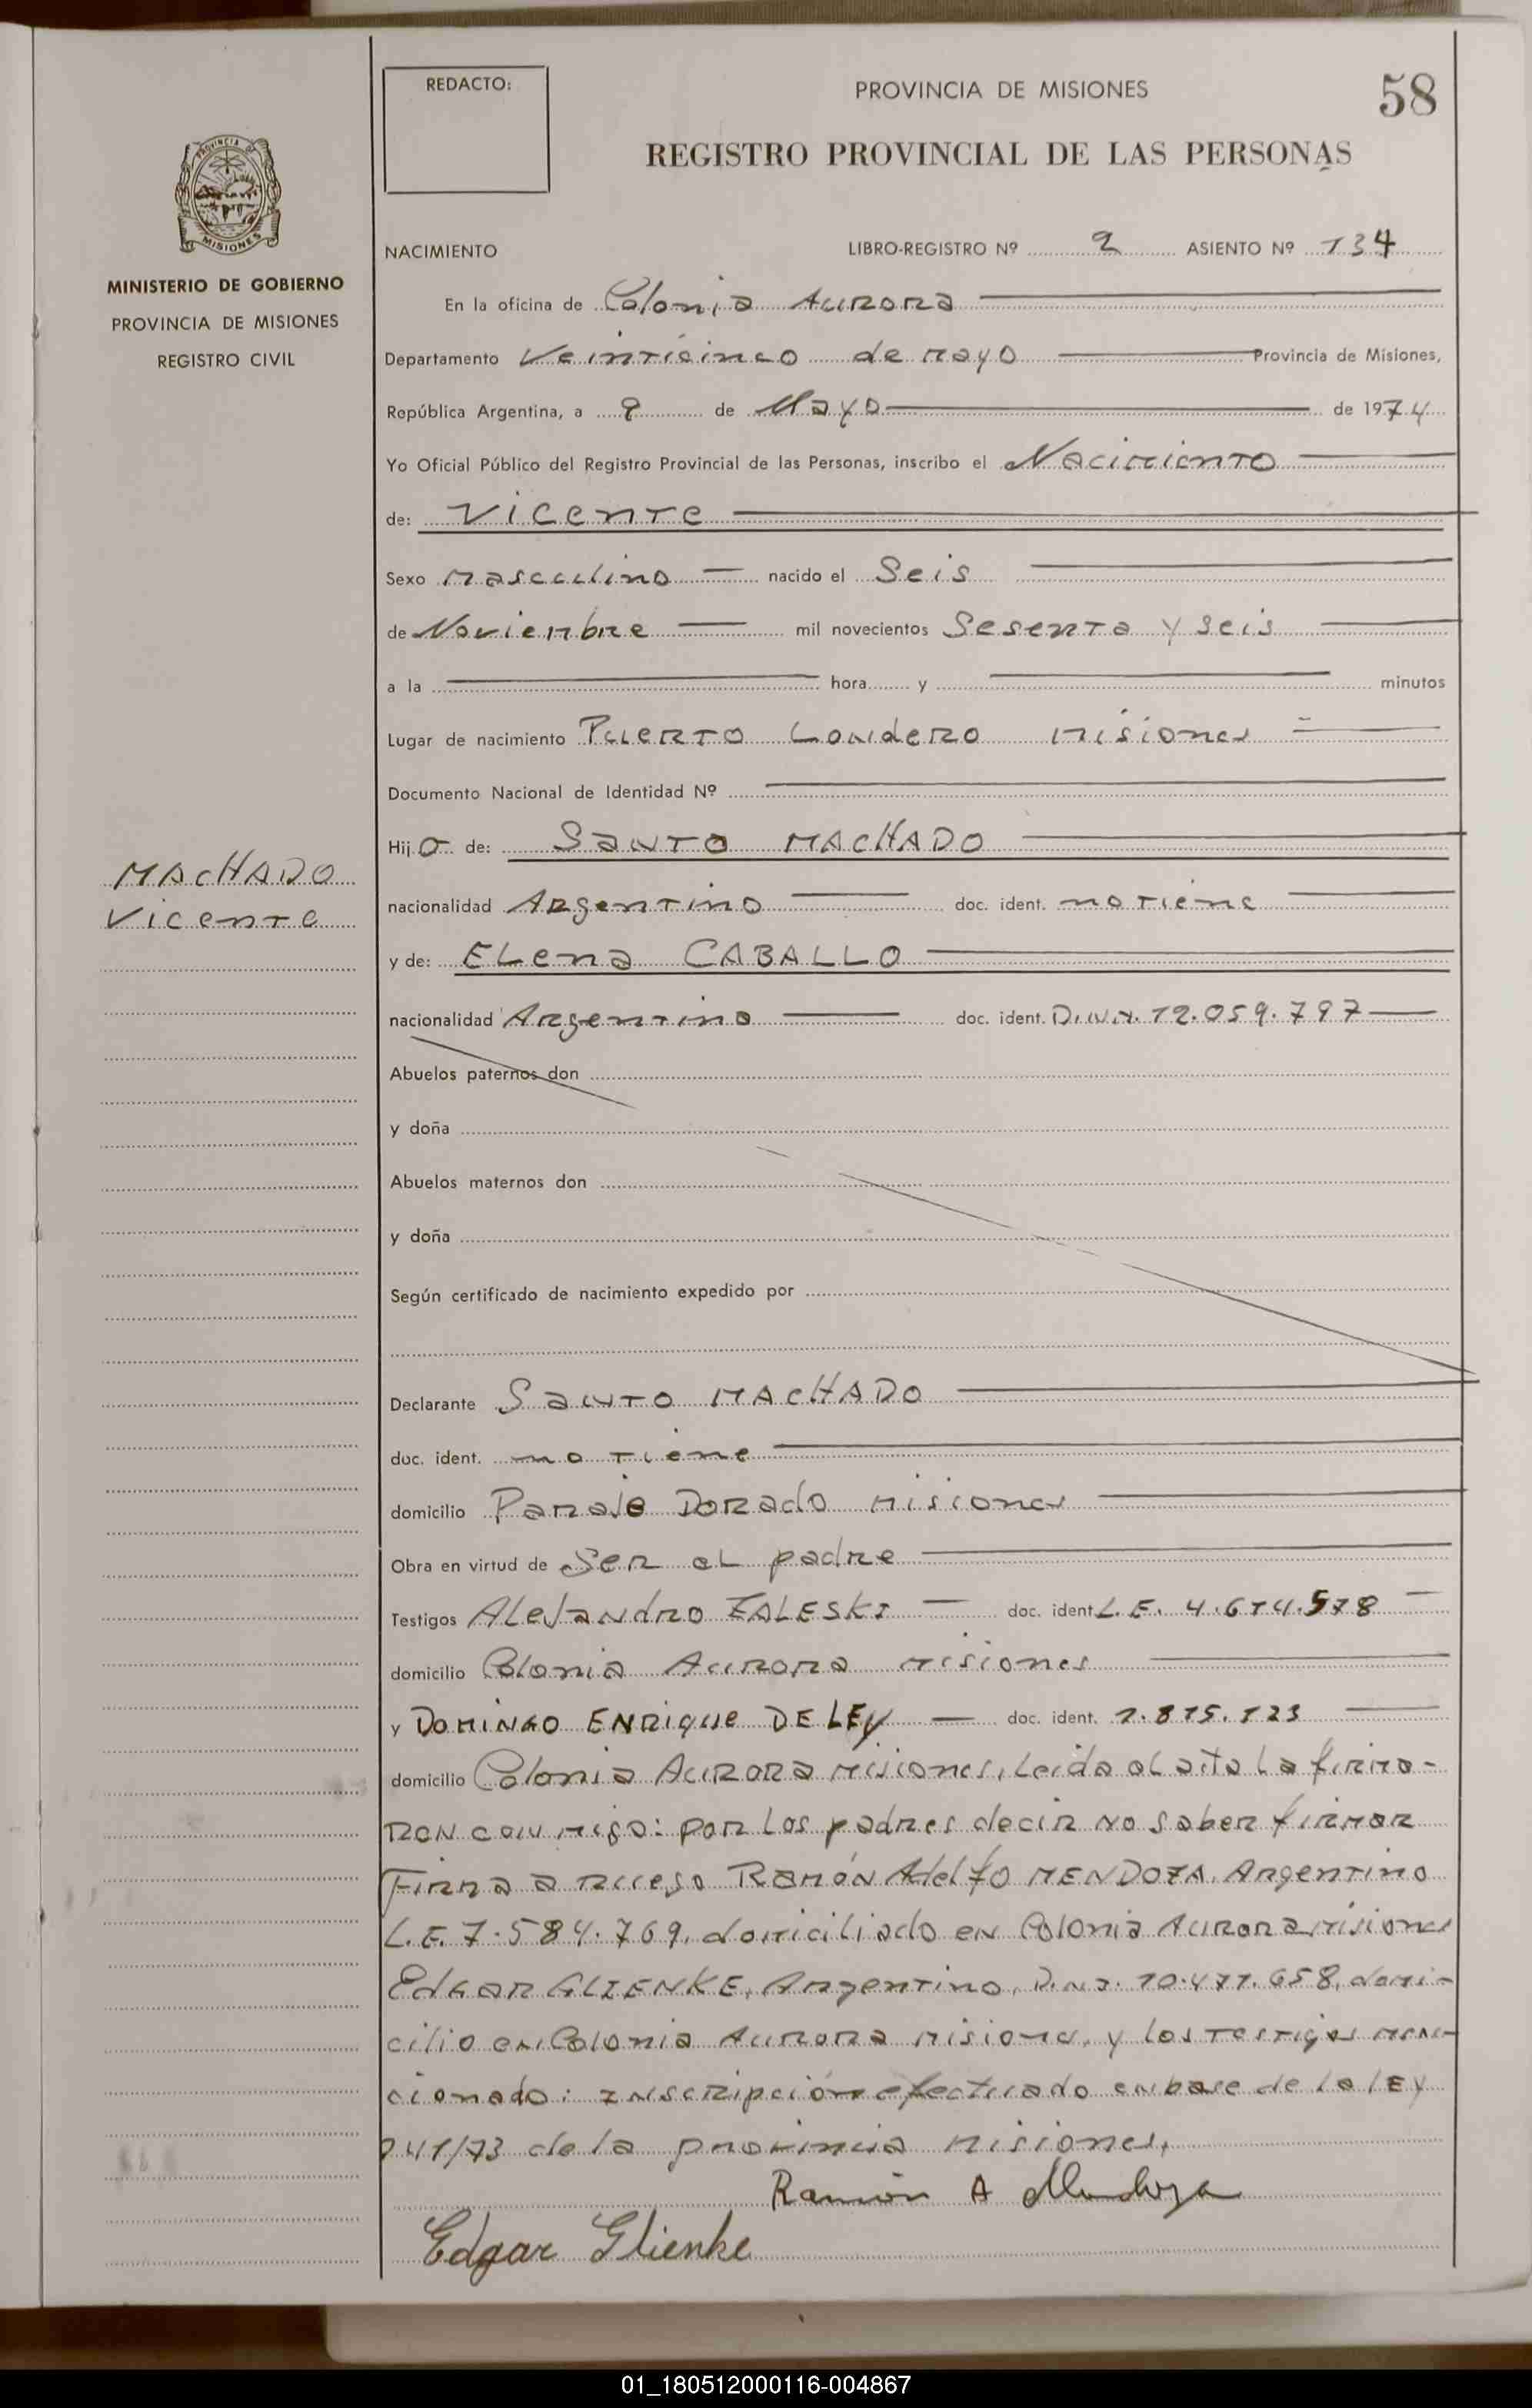 REDACTO:
PROVINCIA DE MISIONES
58
REGISTRO PROVINCIAL DE LAS PERSONAS
PROVINCIA
MISIONES
MINISTERIO DE GOBIERNO
PROVINCIA DE MISIONES
REGISTRO CIVIL
NACIMIENTO LIBRO-REGISTRO Nº 2 ASIENTO Nº 134
En la oficina de Colonia Aurora
Departamento Veinticinco de mayo Provincia de Misiones,
República Argentina, a 9 de Mayo de 1974
Yo Oficial Público del Registro Provincial de las Personas, inscribo el Nacimiento
de: Vicente
Sexo Masculino nacido el Seis
de Noviembre mil novecientos Sesenta y seis
a la hora y minutos
Lugar de nacimiento Puerto Londero Misiones
Documento Nacional de Identidad Nº
Hijo de: Santo MACHADO
MACHADO
Vicente
nacionalidad Argentino doc. ident. no tiene
y de: Elena CABALLO
nacionalidad Argentina doc. ident. D.N.I. 12.059.797
Abuelos paternos don
y doña
Abuelos maternos don
y doña
Según certificado de nacimiento expedido por
Declarante Santo MACHADO
doc. ident. no tiene
domicilio Paraje Dorado Misiones
Obra en virtud de Ser el padre
Testigos Alejandro ZALESKI doc. ident. L.E. 4.614.578
domicilio Colonia Aurora Misiones
y DOMINGO ENRIQUE DE LEY doc. ident. 1.815.123
domicilio Colonia Aurora Misiones, Leida el acta La firma-
ron con migo: por los padres decir no saber firmar
Firma a ruego Ramón Adelfo MENDOZA, Argentino
L.E. 7.584.769, domiciliado en Colonia Aurora Misiones
Edgar GLIENKE, Argentino, D.N.I. 10.471.658, domi-
cilio en Colonia Aurora Misiones, y los testigos men-
cionado: Inscripción efectuado en base de la ley
241/73 de la provincia Misiones.
Ramón A Mendoza
Edgar Glienke
01_180512000116-004867